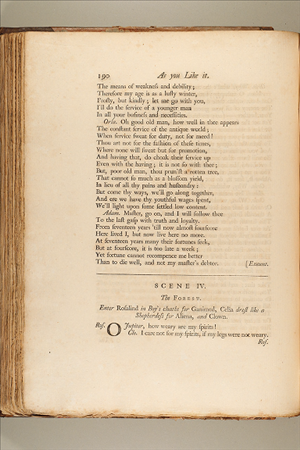 190 As you Like it.
The means of weakness and debility;
Therefore my age is as a lusty winter,
Frosty, but kindly; let me go with you,
I'll do the service of a younger man
In all your business and necessities.
Orla. Oh good old man, how well in thee appears
The constant service of the antique world;
When service sweat for duty, not for meed!
Thou art not for the fashion of these times,
Where none will sweat but for promotion,
And having that, do choak their service up
Even with the having; it is not so with thee;
But, poor old man, thou prun'st a rotten tree,
That cannot so much as a blossom yield,
In lieu of all thy pains and husbandry:
But come thy ways, we'll go along together,
And ere we have thy youthful wages spent,
We'll light upon some settled low content.
Adam. Master, go on, and I will follow thee
To the last gasp with truth and loyalty.
From seventeen years 'till now almost fourscore
Here lived I, but now live here no more.
At seventeen years many their fortunes seek,
But at fourscore, it is too late a week;
Yet fortune cannot recompence me better
Than to die well, and not my master's debtor. [Exeunt.
SCENE IV.
The FOREST.
Enter Rosalind in Boy's cloaths for Ganimed, Celia drest like a
Shepherdess for Aliena, and Clown.
Ros. O Jupiter, how weary are my spirits!
Clo. I care not for my spirits, if my legs were not weary.
Ros.